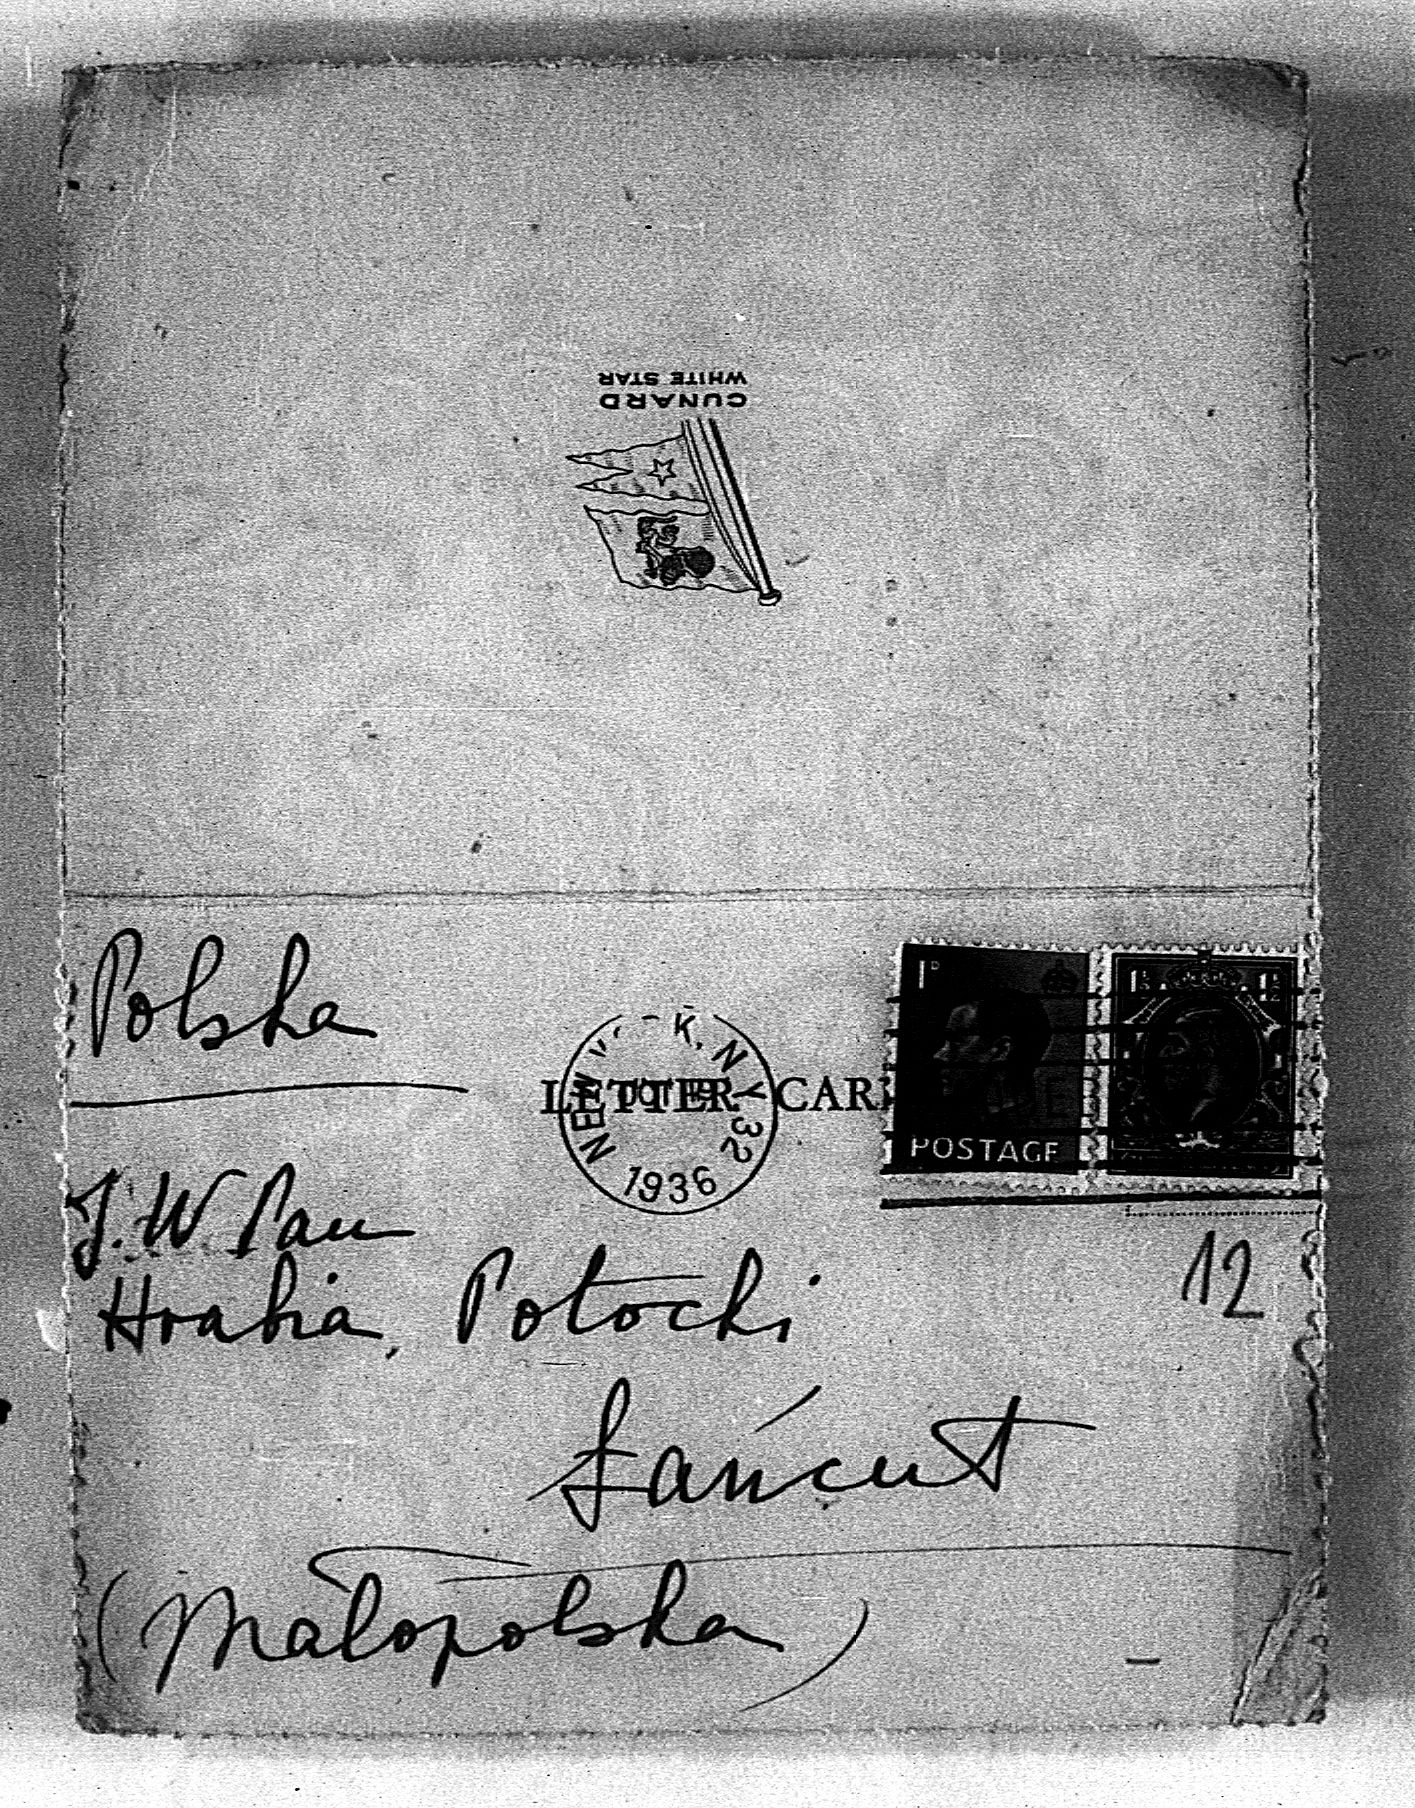 CUNARD
WHITE STAR
Polska
LETTER CARD
NEW YORK, N.Y. 32
1936
1D
POSTAGE
1½ 1½
J. W. Pan
Hrabia Potocki
12
Łańcut
(Małopolska)